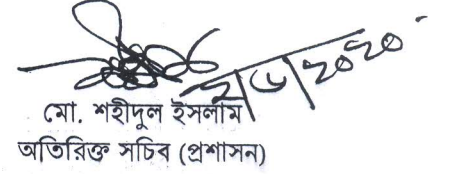 ২০২০
মো. শহীদুল ইসলাম
অতিরিক্ত সচিব (প্রশাসন)